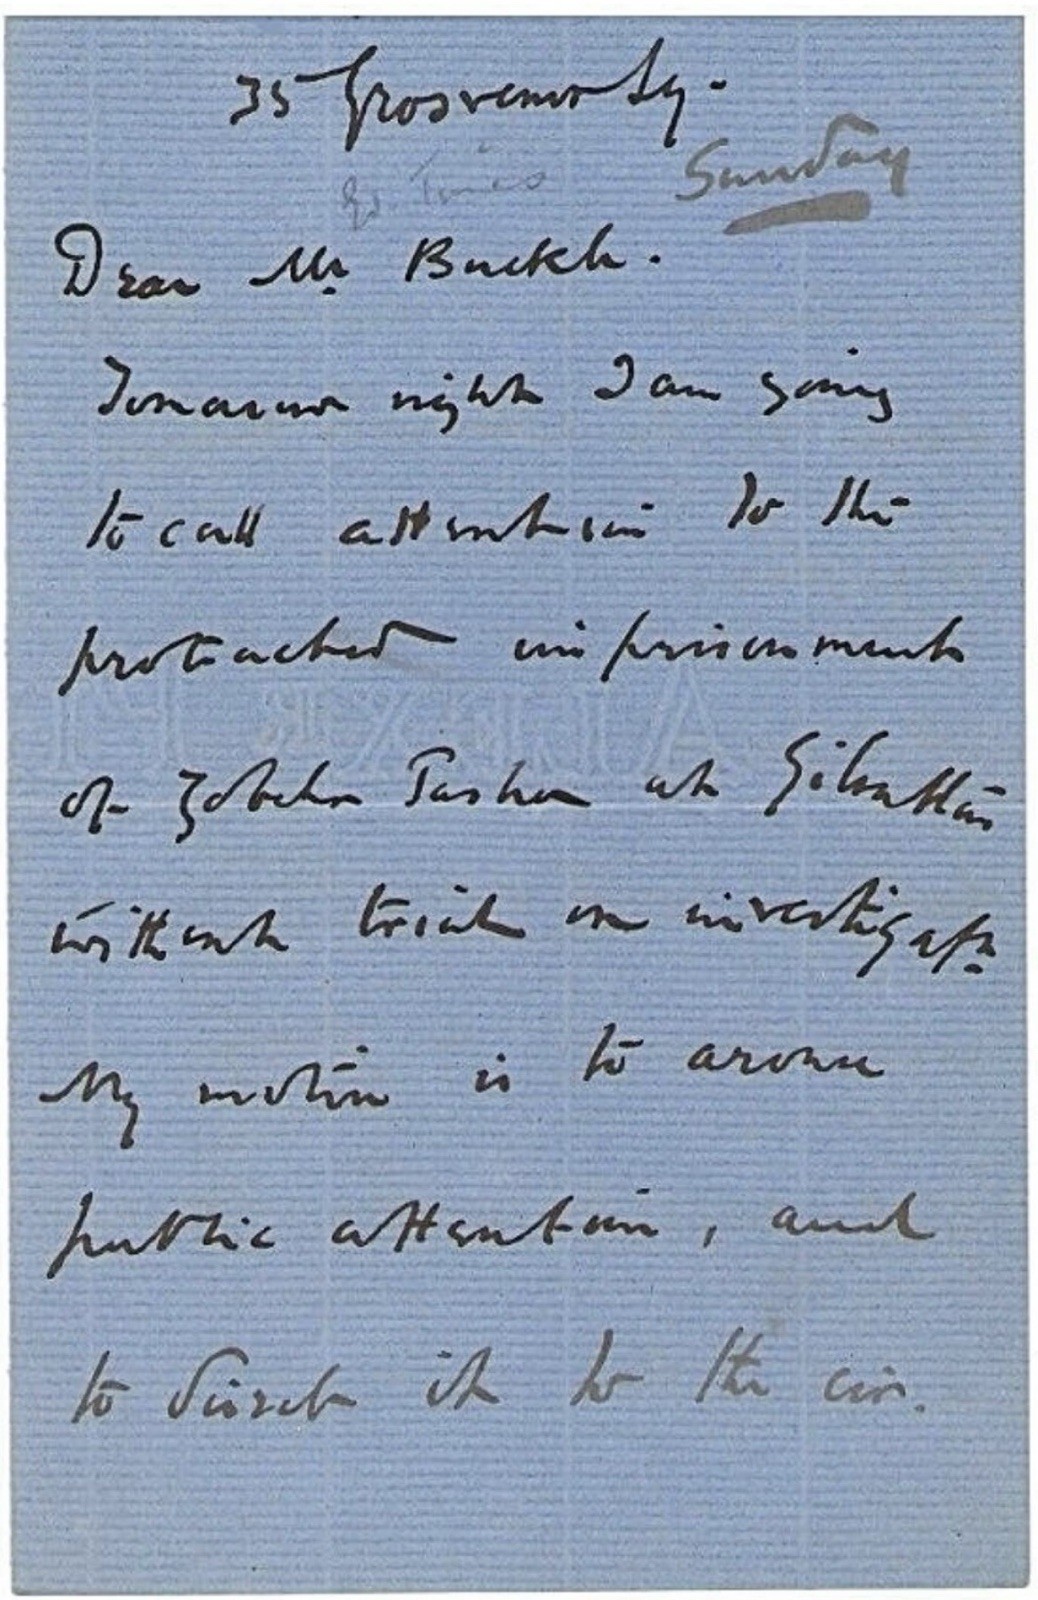 35 Grosvenor Sq.
Sunday
Ed. Times
Dear Mr Buckle.
Tomorrow night I am going
to call attention to the
protracted imprisonment
of Zobehr Pasha at Gibraltar
without trial or investigatn
My motion is to arouse
public attention, and
to direct it to the cir.